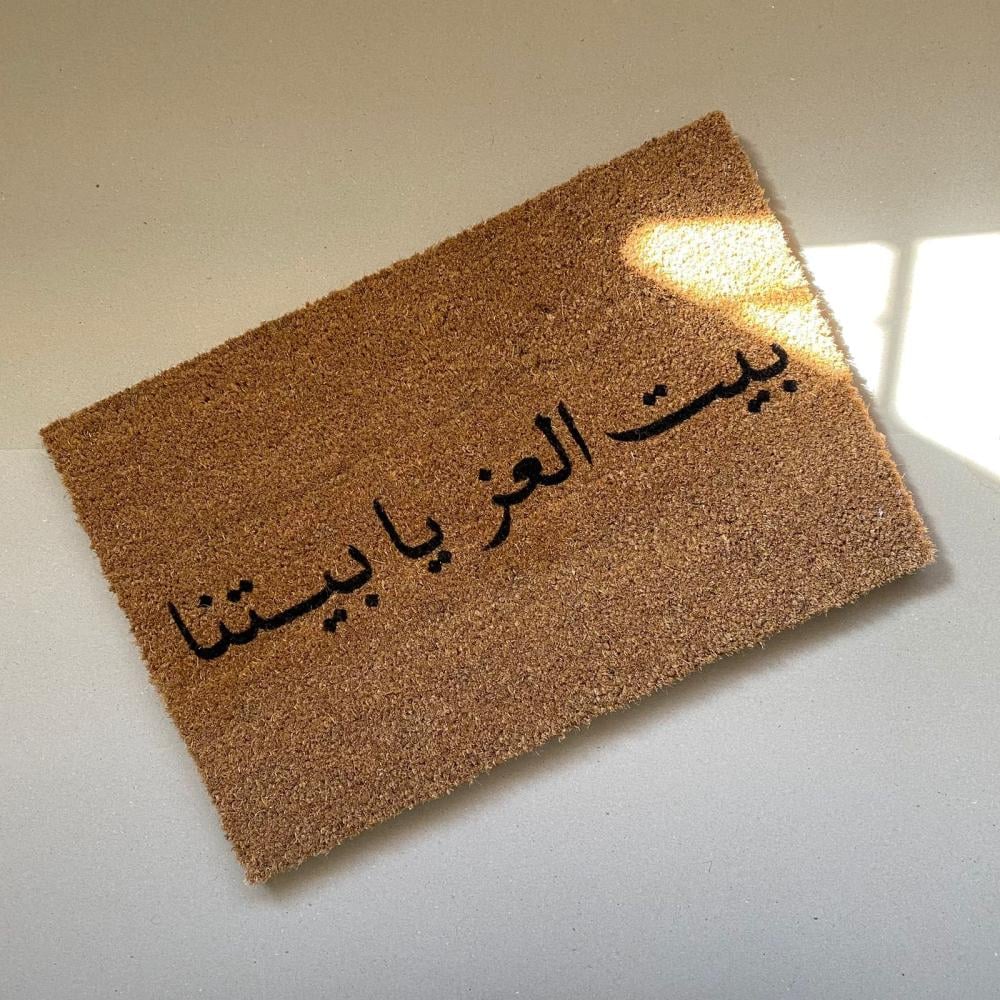 بيت العز يا بيتنا